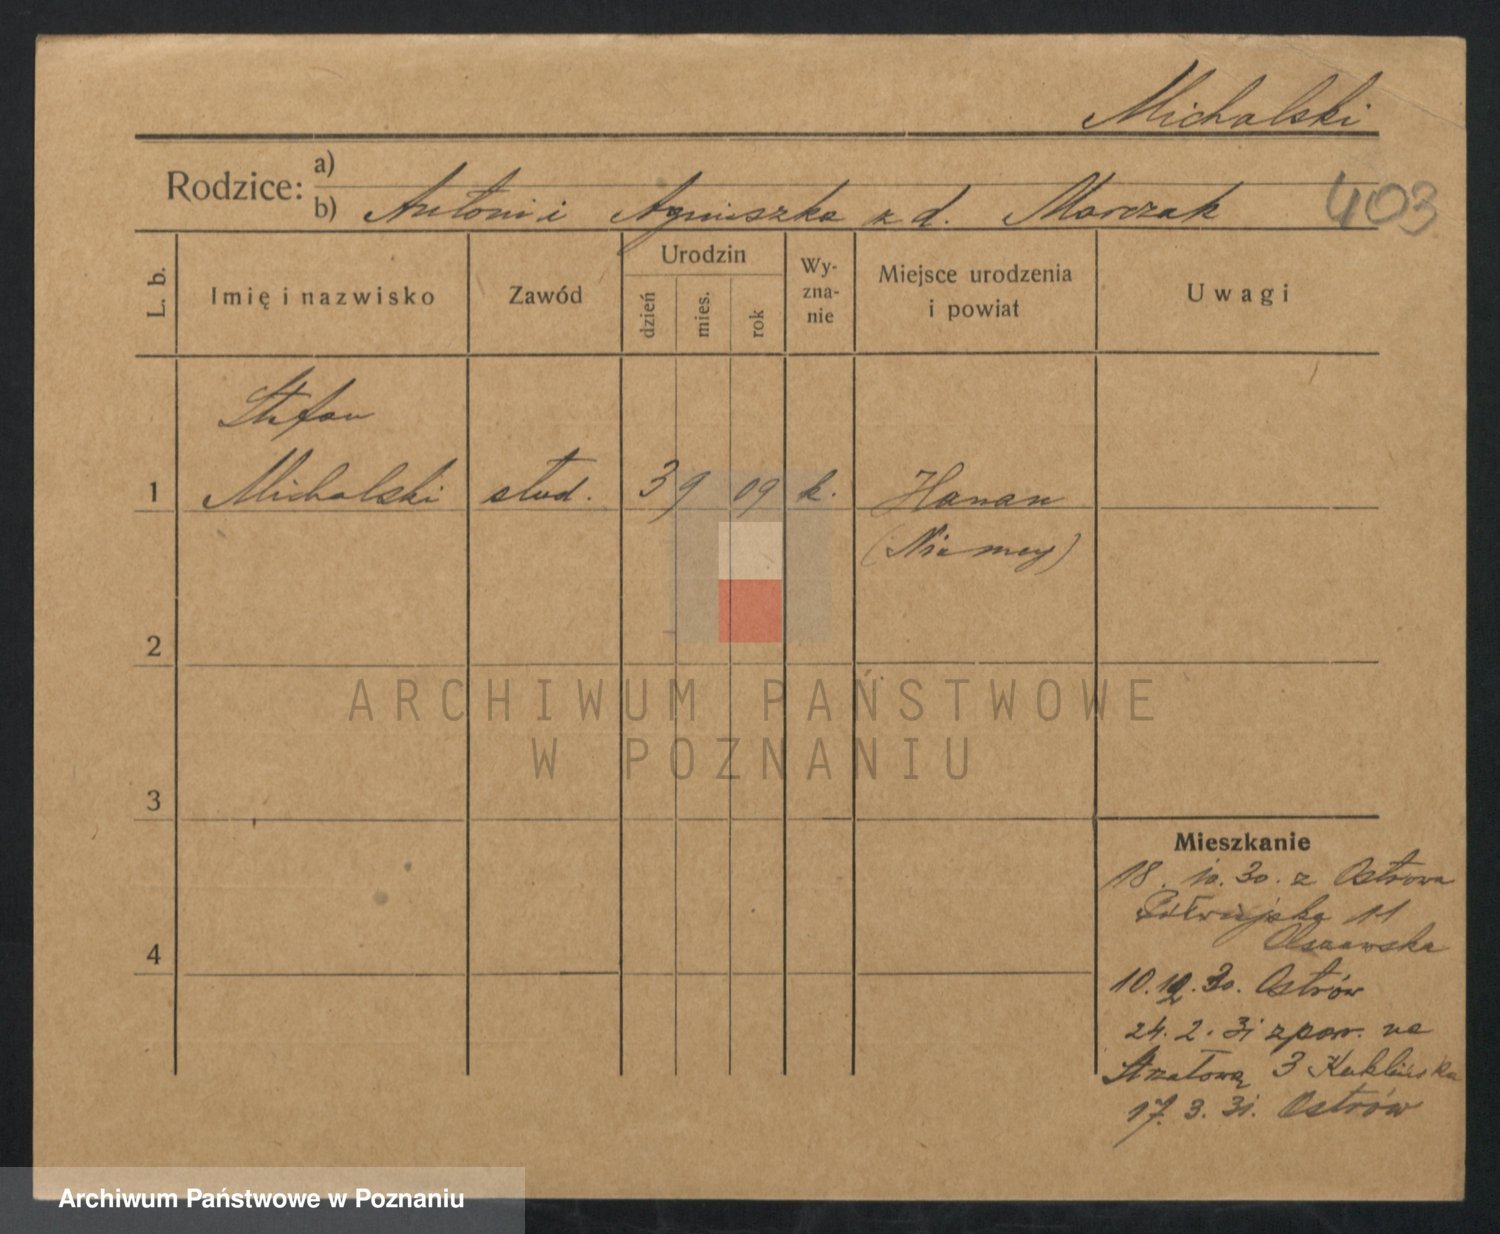 Michalski
Rodzice: a)
b) Antoni i Agnieszka z d. Marczak
403
L. b.
Imię i nazwisko
Zawód
Urodzin
dzień
mies.
rok
Wy-
zna-
nie
Miejsce urodzenia
i powiat
Uwagi
Stefan
1 Michalski stud. 3 9 09 k. Hanau
(Niemcy)
2
ARCHIWUM PAŃSTWOWE
W POZNANIU
3
Mieszkanie
18. 10. 30. z Ostrowa
Półwiejska 11
4
10.12.30. Ostrów
24. 2. 31 zpow. na
Strzałową 3
17. 3. 31. Ostrów
Archiwum Państwowe w Poznaniu